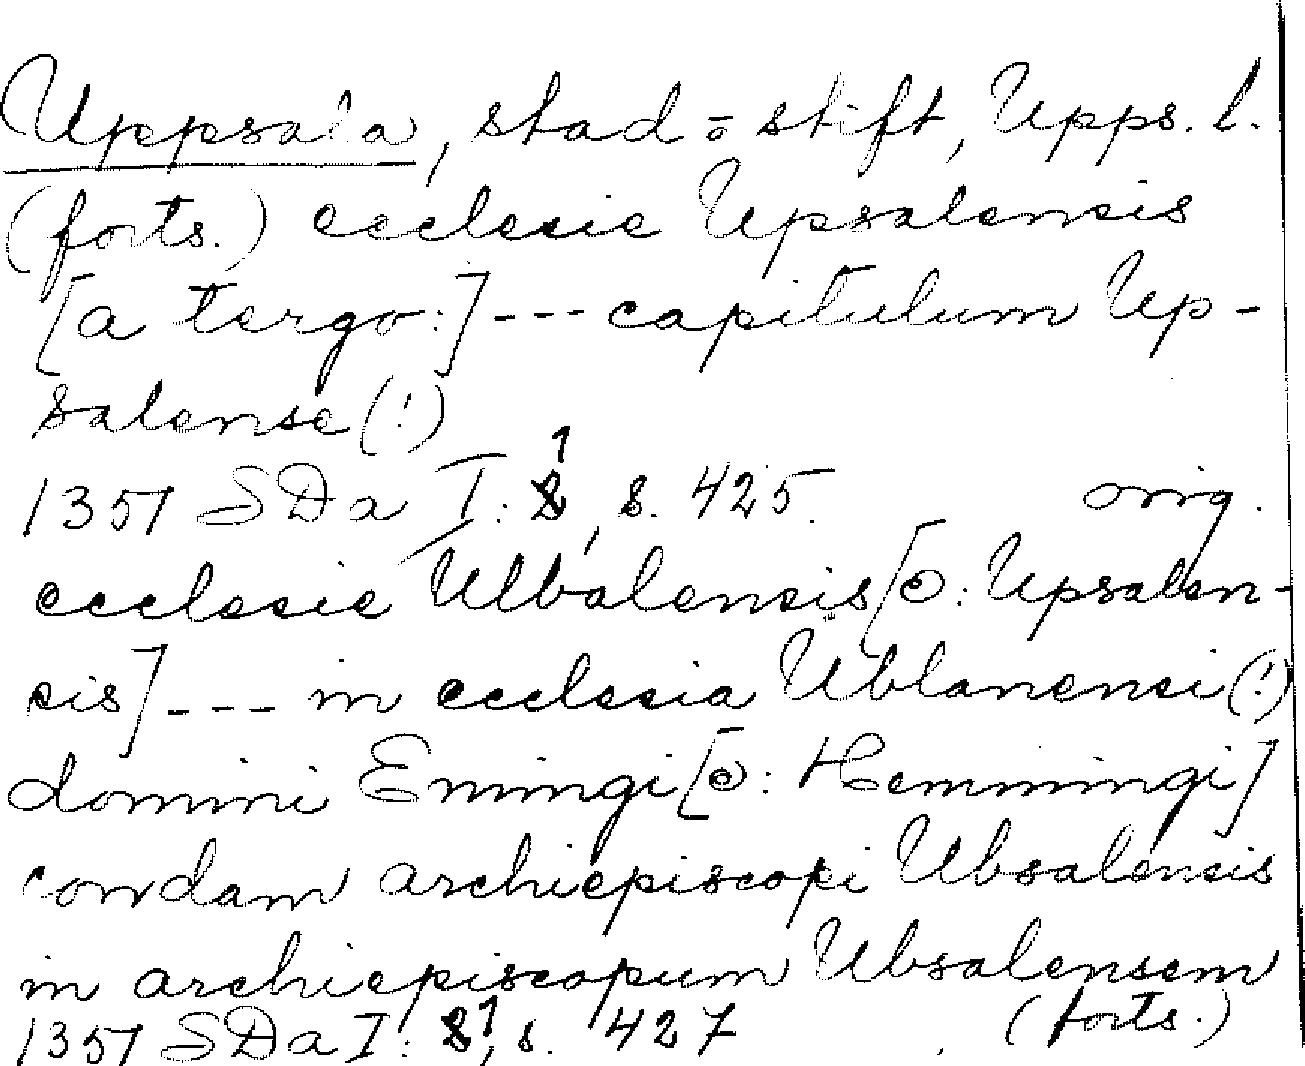 Uppsala, stad o stift, Upps. l.
(forts.) ecclesie Upsalensis
[a tergo:] --- capitulum Up-
salense (!)
1
1351 SDa I: s. 425. orig.
ecclesie Ulbalensis [ɔ: Upsalen-
sis] --- in ecclesia Ublanensi (!)
domini Emingi [ɔ: Hemmingi]
condam archiepiscopi Ubsalensis
in archiepiscopum Ubsalensem
1351 SDa I: 1, s. 427 (forts.)